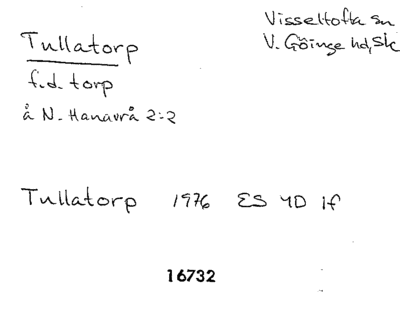 Tullatorp
Visseltofta sn
V. Göinge hd, Sk
f.d. torp
å N. Hanavrå 2:2
Tullatorp 1976 ES 4D 1f
16732